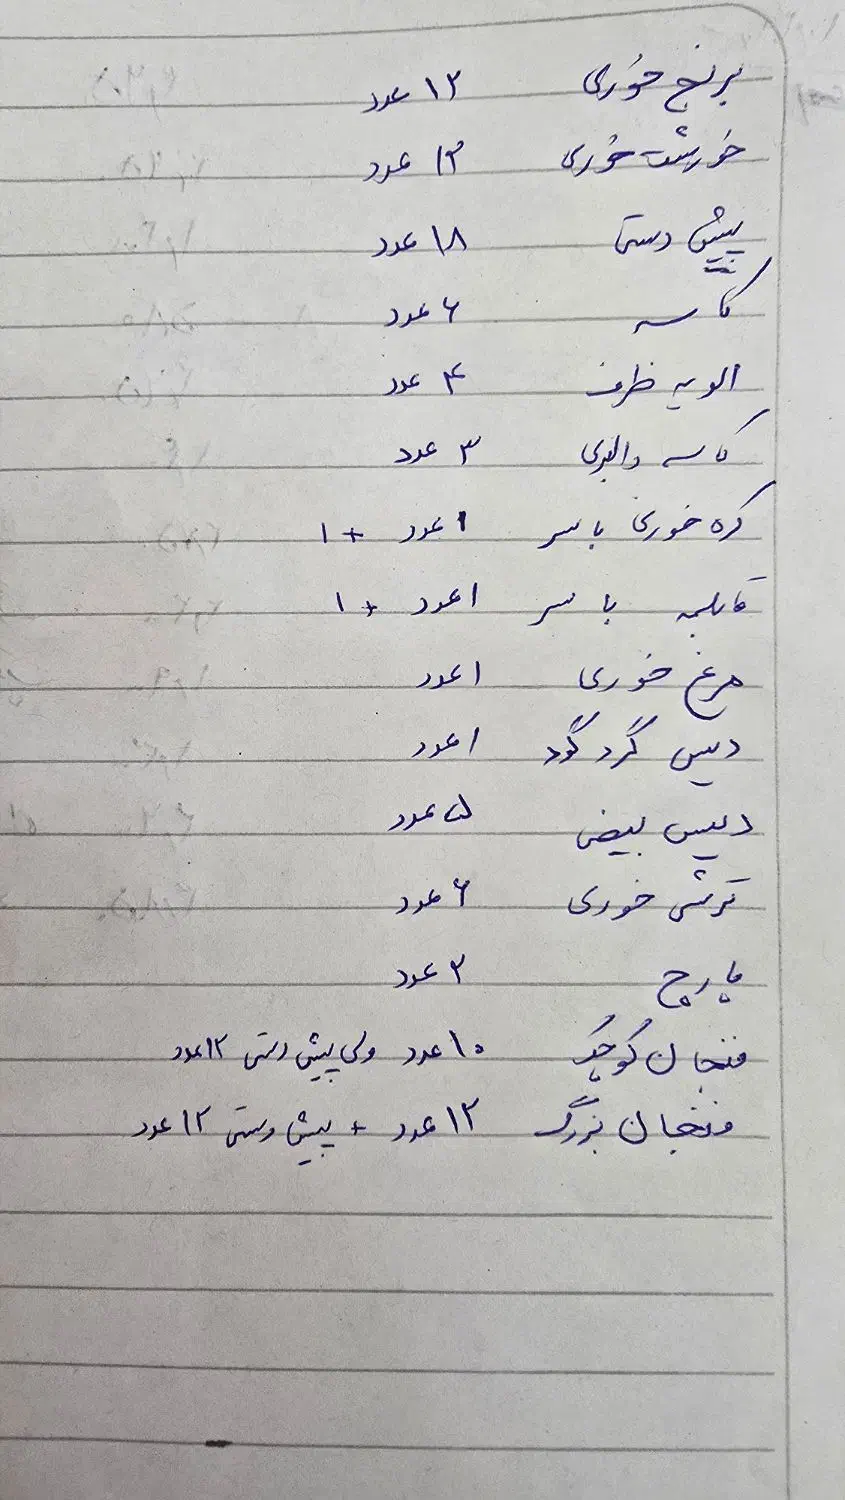 برنج خوری ۱۲ عدد
خورشت خوری ۱۳ عدد
پیش دستی ۱۸ عدد
کاسه ۶ عدد
الویه ظرف ۴ عدد
کاسه ۳ عدد
کره خوری با سر ۱ عدد + ۱
قابلمه با سر ۱ عدد + ۱
مرغ خوری ۱ عدد
دیس گرد گود ۱ عدد
دیس بیضی ۵ عدد
ترشی خوری ۶ عدد
پارچ ۲ عدد
فنجان کوچک ۱۰ عدد ولی پیش دستی ۱۲ عدد
فنجان بزرگ ۱۲ عدد + پیش دستی ۱۲ عدد